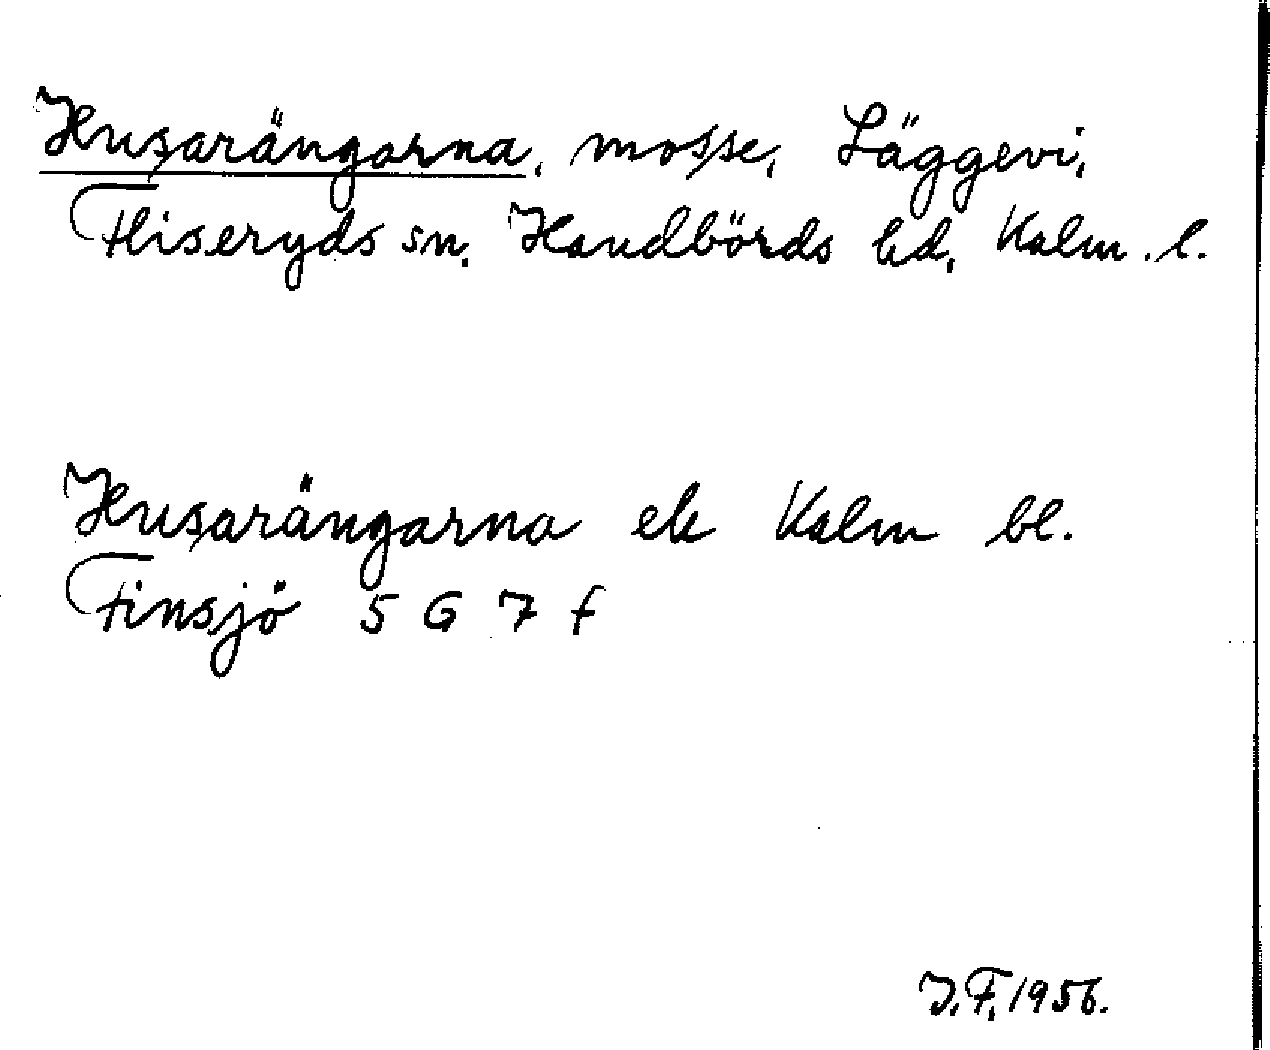 Husarängarna, mosse, Läggevi,
Fliseryds sn. Handbörds hd, Kalm. l.
Husarängarna ek Kalm bl.
Finsjö 5 G 7 f
J.F. 1956.